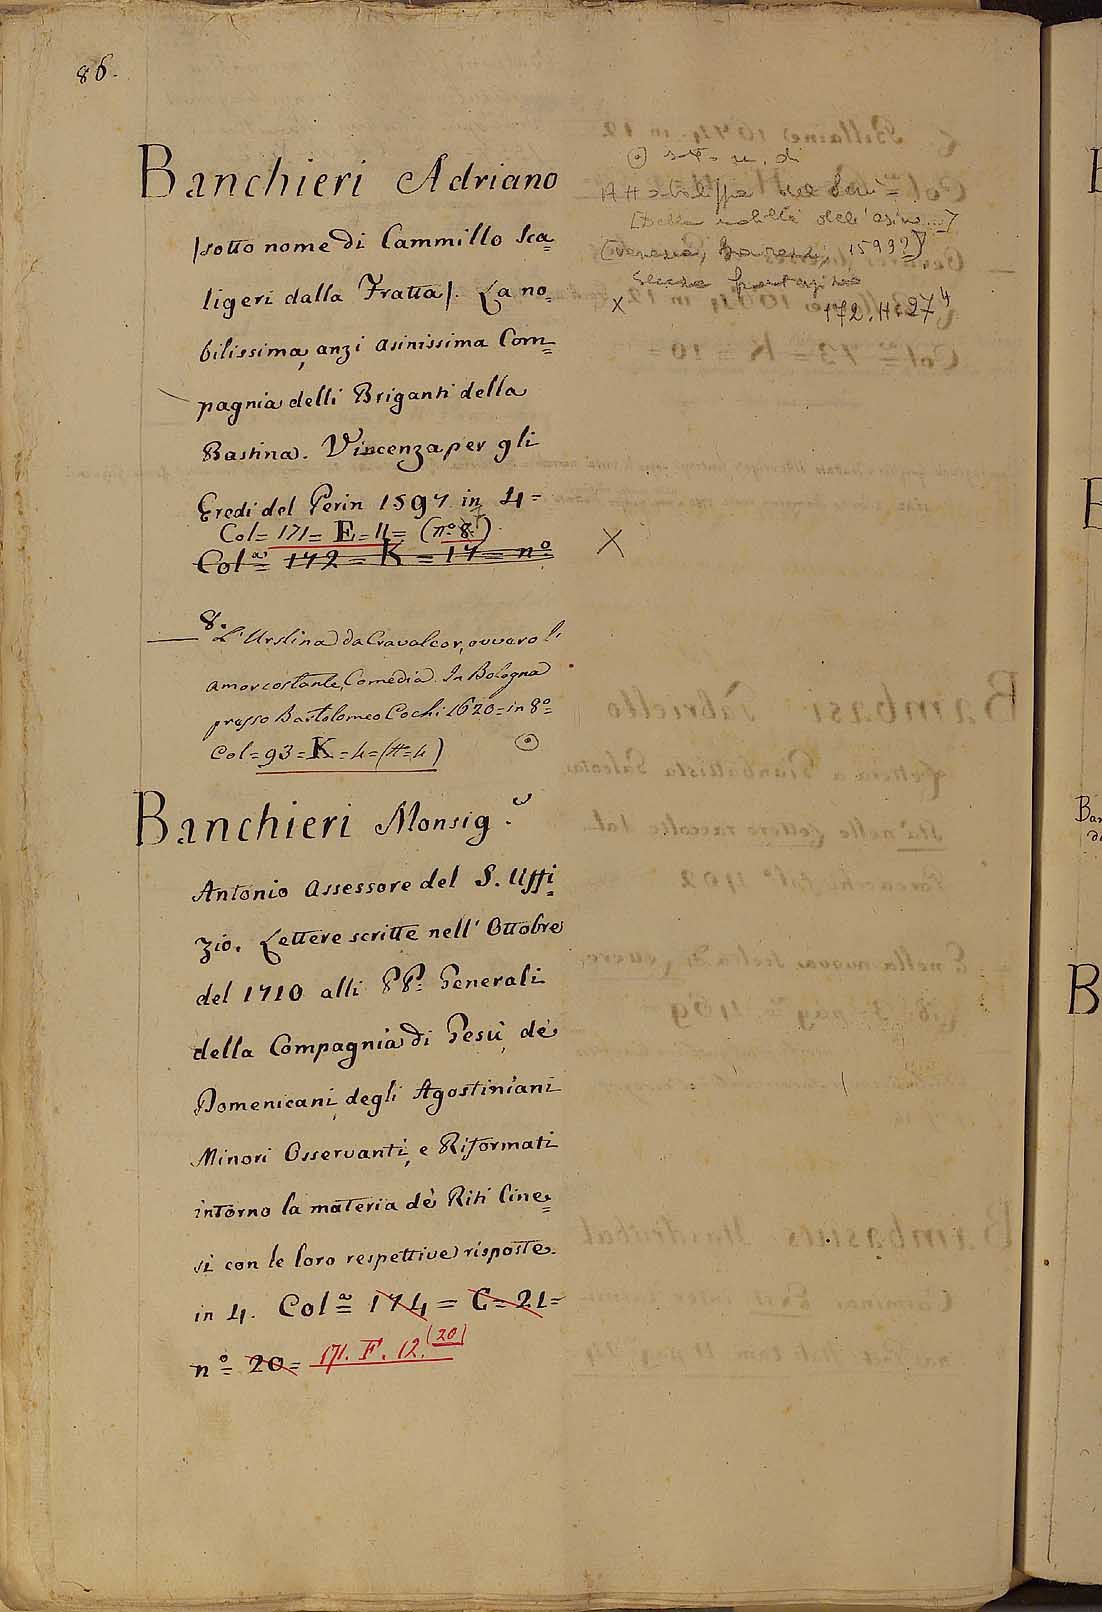 86.
Banchieri Adriano
/sotto nome di Cammillo Sca=
ligeri dalla Fratta/. La no=
bilissima, anzi asinissima Com=
pagnia delli Briganti della
Bastina. Vincenza per gli
Eredi del Perin 1597 in 4=
Col= 171= E= 11= (n.o 8.)
Col.a= 172= K= 17= n.o
8.
L'Urslina da Cravalcor, ovvero l'
amor costante, Comedia. In Bologna
presso Bartolomeo Cochi 1620= in 8o=
Col= 93= K= 4= (#= 4)
Banchieri Monsig.r
Antonio Assessore del S. Uffi=
zio. Lettere scritte nell' Ottobre
del 1710 alli PP: Generali
della Compagnia di Gesù, de'
Domenicani, degli Agostiniani
Minori Osservanti, e Riformati
intorno la materia de' Riti Cine=
si con le loro respettive risposte.
in 4. Col.a= 174= C= 21=
n.o= 20= 171. F. 12. (20)
sotto n. di
Attabalippa
[Della nobiltà dell'asino ...]
(Venezia, Barezzi, 1599?)
X 172. H. 27 4
X
Ban
B